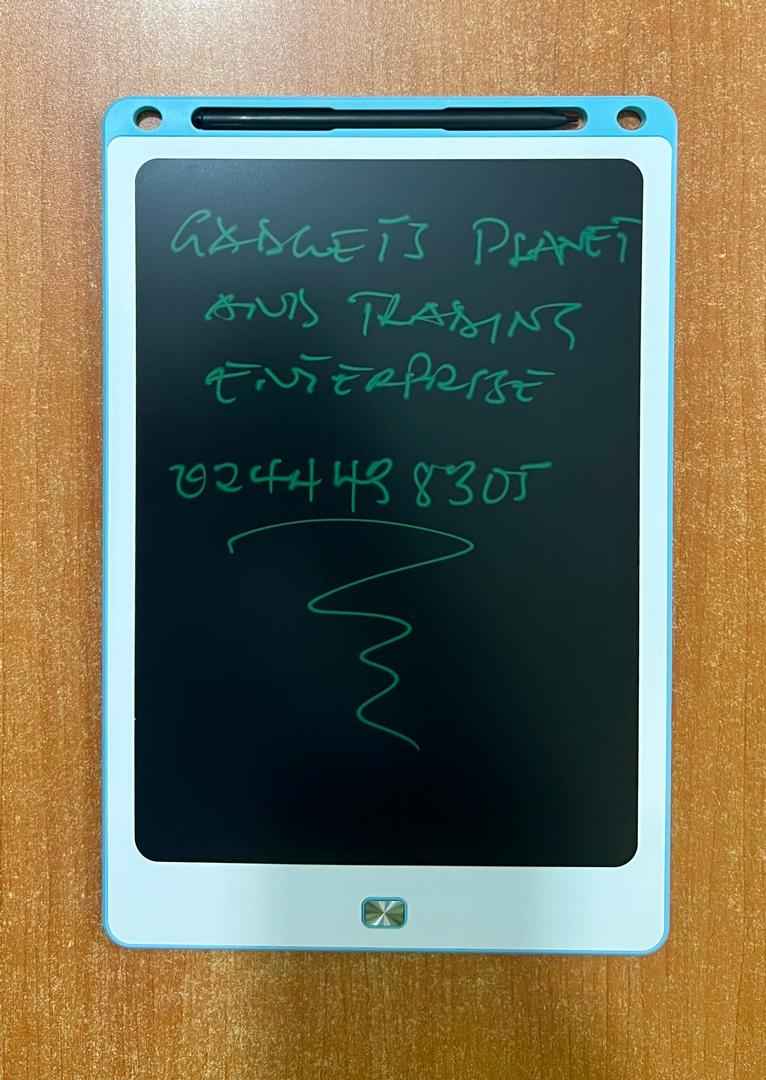 GADGETS PLANET
AND TRADING
ENTERPRISE
0244498305